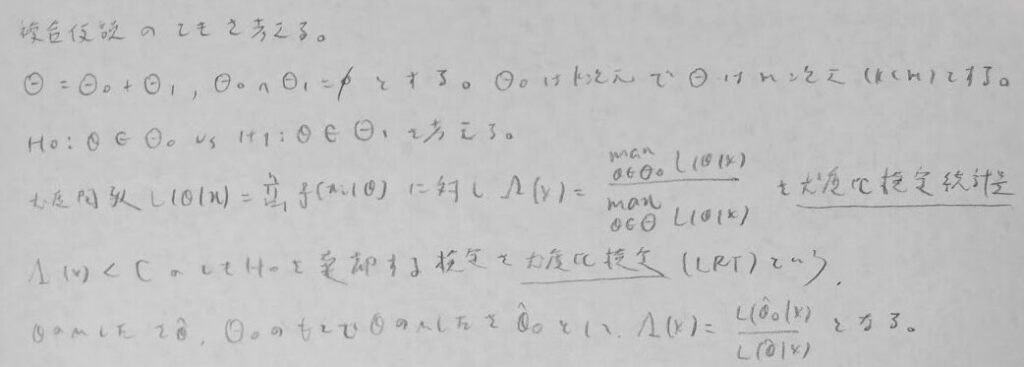 複合仮説のときを考える。
Θ = Θ₀ + Θ₁, Θ₀ ∩ Θ₁ = φ とする。Θ₀ は k次元で Θ は n次元 (k<n) とする。
H₀: θ ∈ Θ₀ vs H₁: θ ∈ Θ₁ を考える。
尤度関数 L(θ|x) = ∏ᵢ₌₁ⁿ f(xᵢ|θ) に対し Λ(x) = max_{θ∈Θ₀} L(θ|x) / max_{θ∈Θ} L(θ|x) を尤度比検定統計量
Λ(x) < C のとき H₀ を棄却する検定を尤度比検定 (LRT) という.
θのMLEを θ̂, Θ₀のもとでθのMLEを θ̂₀ とし、Λ(x) = L(θ̂₀|x) / L(θ̂|x) となる。